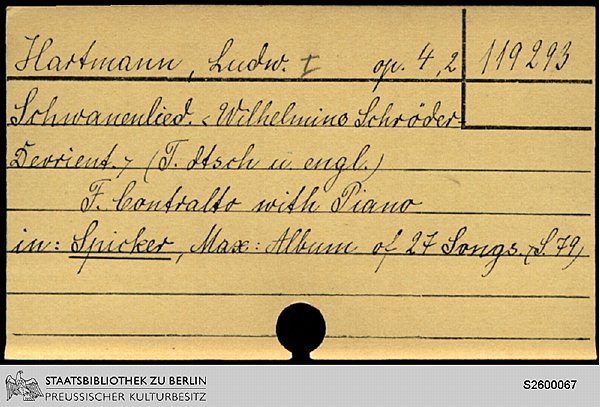 Hartmann, Ludw. I op. 4,2 119293
Schwanenlied. <Wilhelmine Schröder
Devrient.> (T. dtsch u. engl.)
F. Contralto with Piano
in: Spicker, Max: Album of 27 Songs. (S. 79)
STAATSBIBLIOTHEK ZU BERLIN
PREUSSISCHER KULTURBESITZ
S2600067